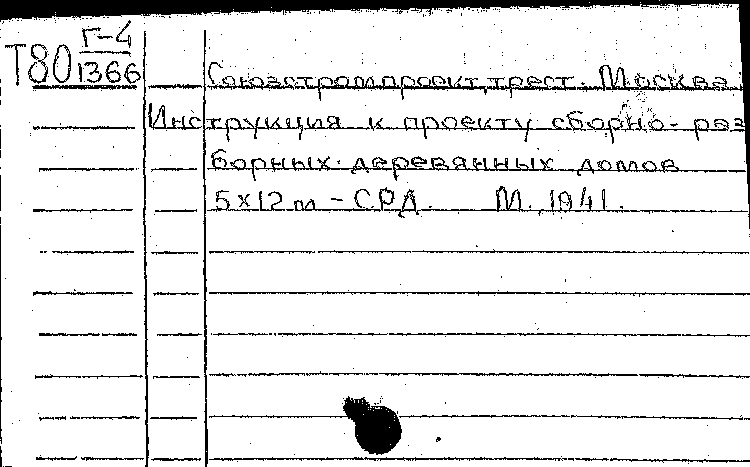 Г-4
Т80 1366
Союзстромпроект, трест. Москва.
Инструкция к проекту сборно-раз
борных деревянных домов
5×12 м - СРД. М., 1941.